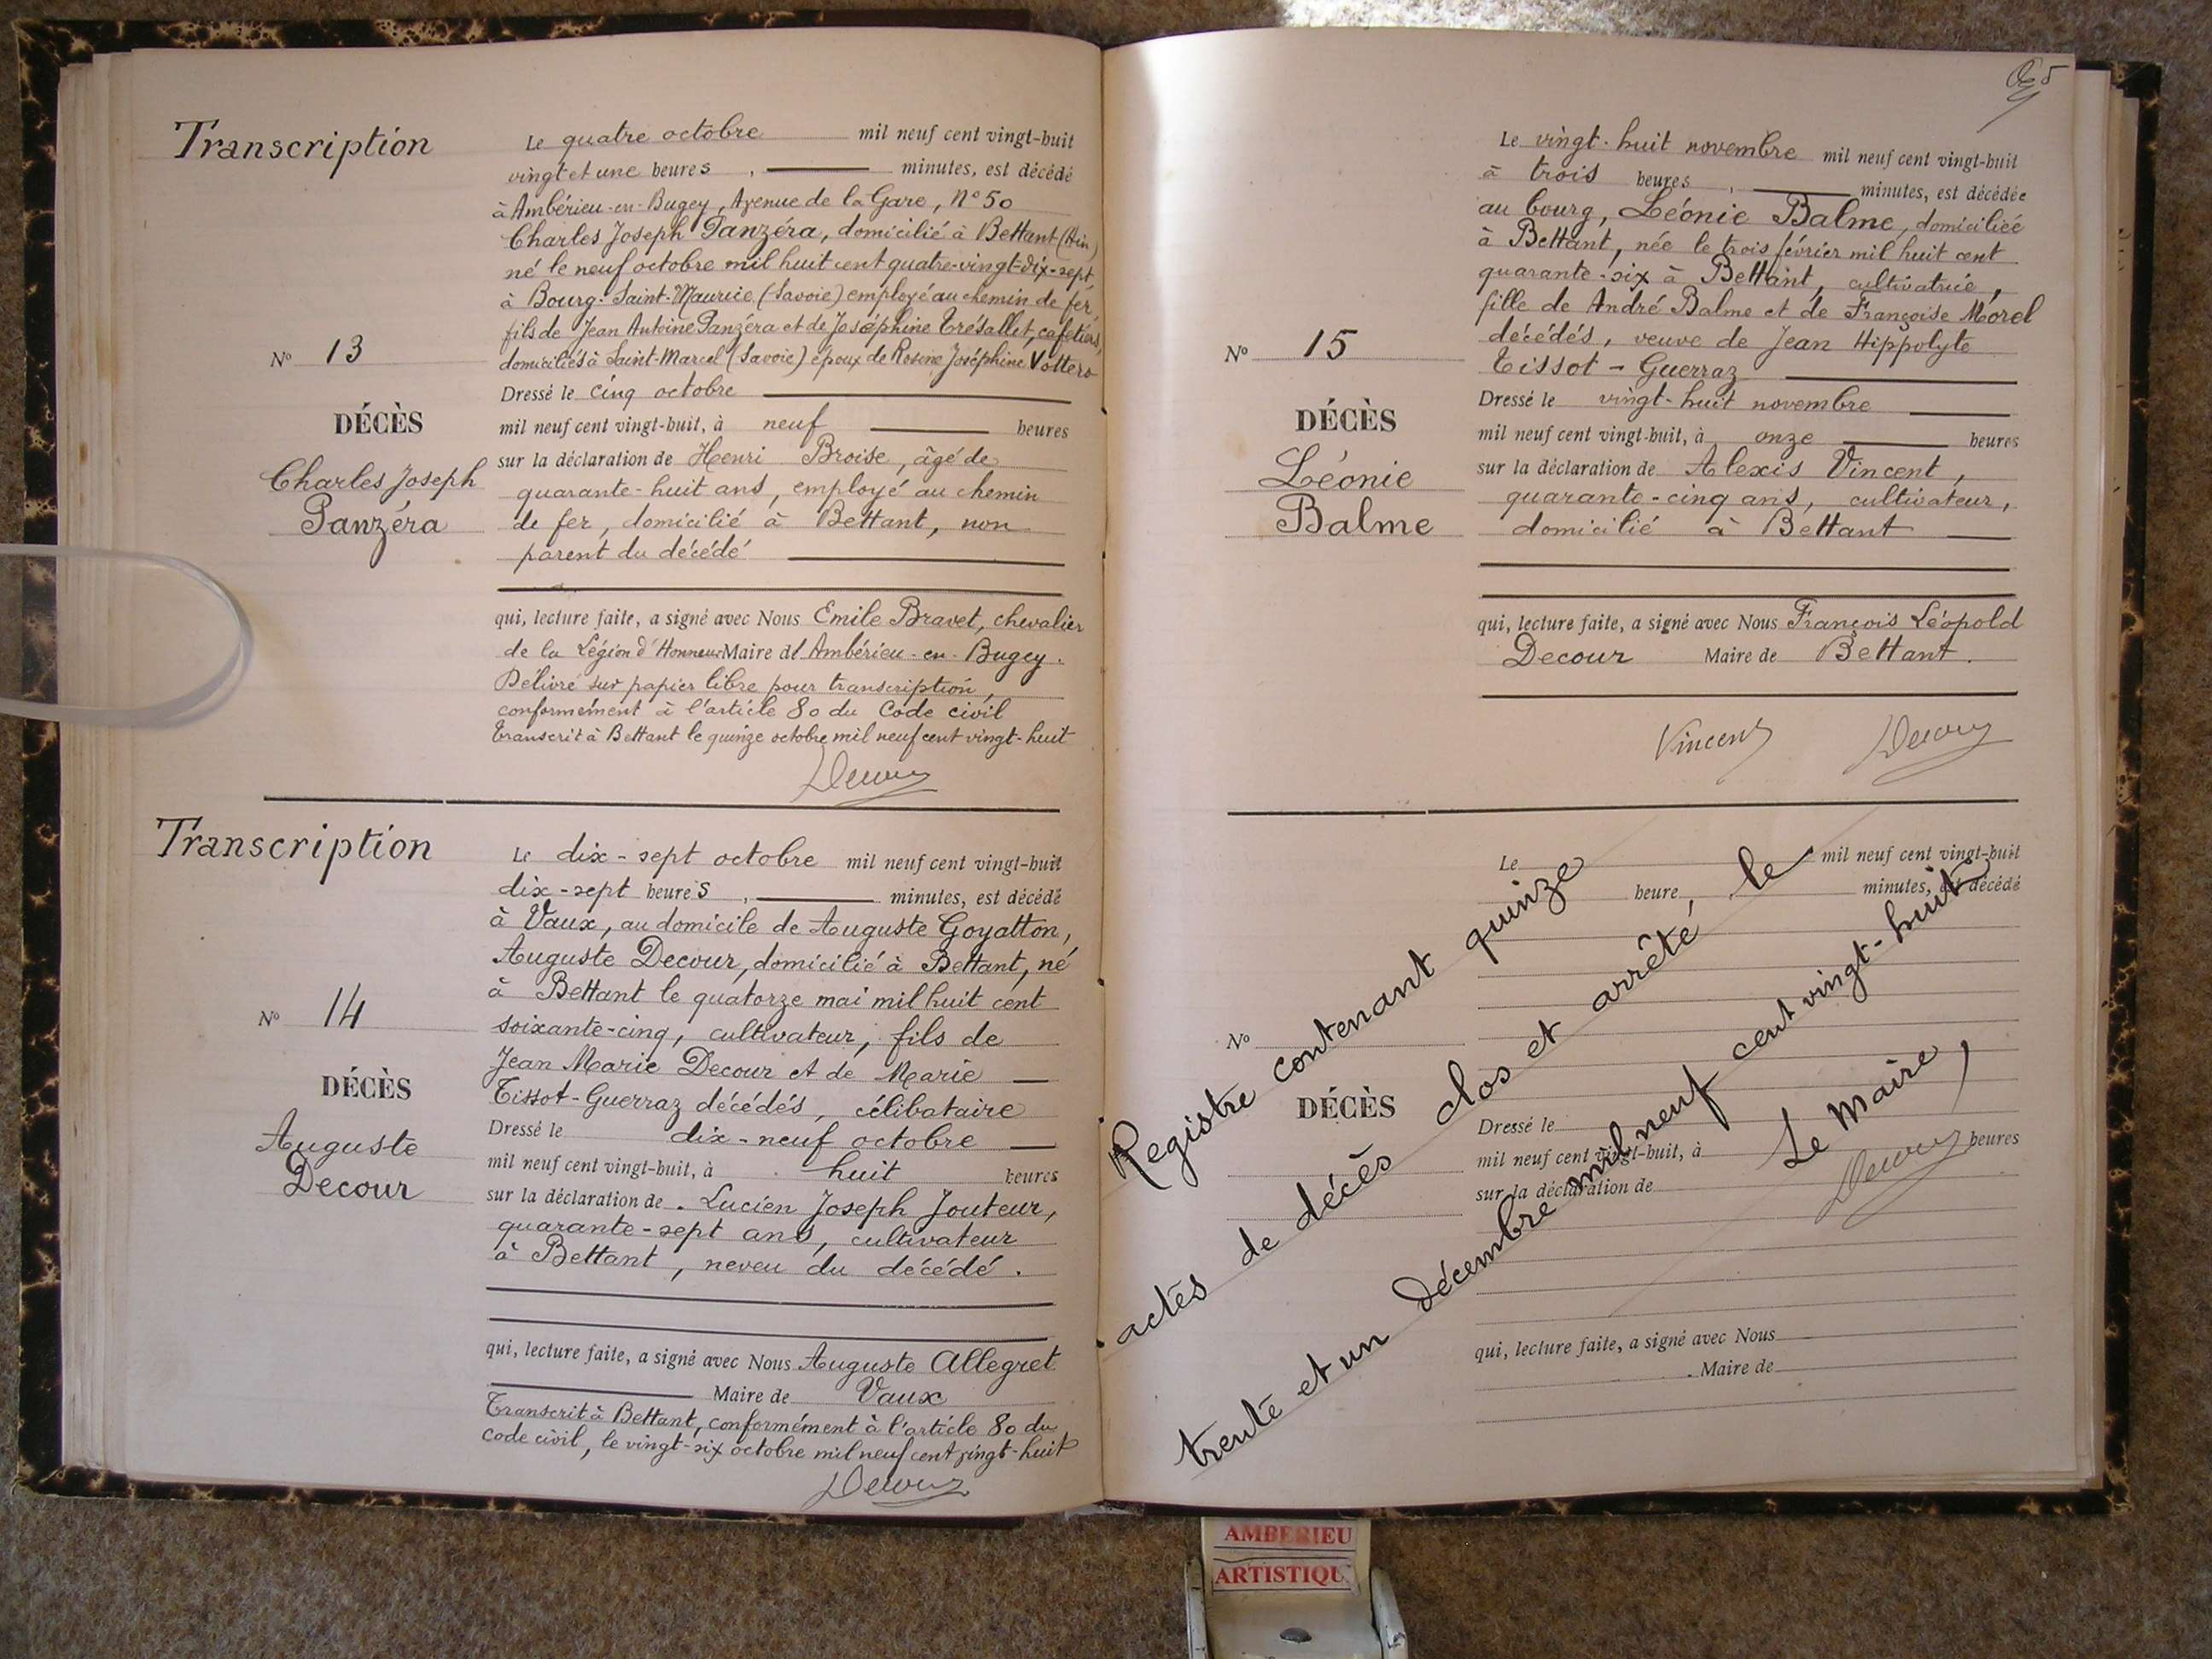 Transcription
Le quatre octobre mil neuf cent vingt-huit
vingt et une heures , minutes, est décédé
à Ambérieu-en-Bugey, Avenue de la Gare, N° 50
Charles Joseph Panzéra, domicilié à Bettant (Ain)
né le neuf octobre mil huit cent quatre-vingt-dix-sept,
à Bourg-Saint-Maurice (Savoie) employé au chemin de fer,
fils de Jean Antoine Panzéra et de Joséphine Trésallet, cafetiers,
domiciliés à Saint-Marcel (Savoie) époux de Rosine Joséphine Vottero
N° 13
DÉCÈS
Charles Joseph
Panzéra
Dressé le cinq octobre
mil neuf cent vingt-huit, à neuf heures
sur la déclaration de Henri Broise, âgé de
quarante-huit ans, employé au chemin
de fer, domicilié à Bettant, non
parent du décédé
qui, lecture faite, a signé avec Nous Emile Bravet, chevalier
de la Légion d'Honneur Maire d'Ambérieu-en-Bugey.
Délivré sur papier libre pour transcription,
conformément à l'article 80 du Code civil
Transcrit à Bettant le quinze octobre mil neuf cent vingt-huit
Decour
Transcription
Le dix-sept octobre mil neuf cent vingt-huit
dix-sept heures , minutes, est décédé
à Vaux, au domicile de Auguste Goyatton,
Auguste Decour, domicilié à Bettant, né
à Bettant le quatorze mai mil huit cent
soixante-cinq, cultivateur, fils de
Jean Marie Decour et de Marie
Tissot-Guerraz décédés, célibataire
N° 14
DÉCÈS
Auguste
Decour
Dressé le dix-neuf octobre
mil neuf cent vingt-huit, à huit heures
sur la déclaration de Lucien Joseph Jouteur,
quarante-sept ans, cultivateur
à Bettant, neveu du décédé.
qui, lecture faite, a signé avec Nous Auguste Allegret
Maire de Vaux
Transcrit à Bettant, conformément à l'article 80 du
code civil, le vingt-six octobre mil neuf cent vingt-huit
Decour
Le vingt-huit novembre mil neuf cent vingt-huit
à trois heures , minutes, est décédée
au bourg, Léonie Balme, domiciliée
à Bettant, née le trois février mil huit cent
quarante-six à Bettant, cultivatrice,
fille de André Balme et de Françoise Morel
décédés, veuve de Jean Hippolyte
Tissot-Guerraz
N° 15
DÉCÈS
Léonie
Balme
Dressé le vingt-huit novembre
mil neuf cent vingt-huit, à onze heures
sur la déclaration de Alexis Vincent,
quarante-cinq ans, cultivateur,
domicilié à Bettant
qui, lecture faite, a signé avec Nous François Léopold
Decour Maire de Bettant.
Vincent Decour
Le mil neuf cent vingt-huit
heure, minutes, est décédé
N°
DÉCÈS
Dressé le
mil neuf cent vingt-huit, à heures
sur la déclaration de
qui, lecture faite, a signé avec Nous
Maire de
Registre contenant quinze
actes de décès clos et arrêté, le
trente et un décembre mil neuf cent vingt-huit
Le Maire,
Decour
AMBERIEU
ARTISTIQU